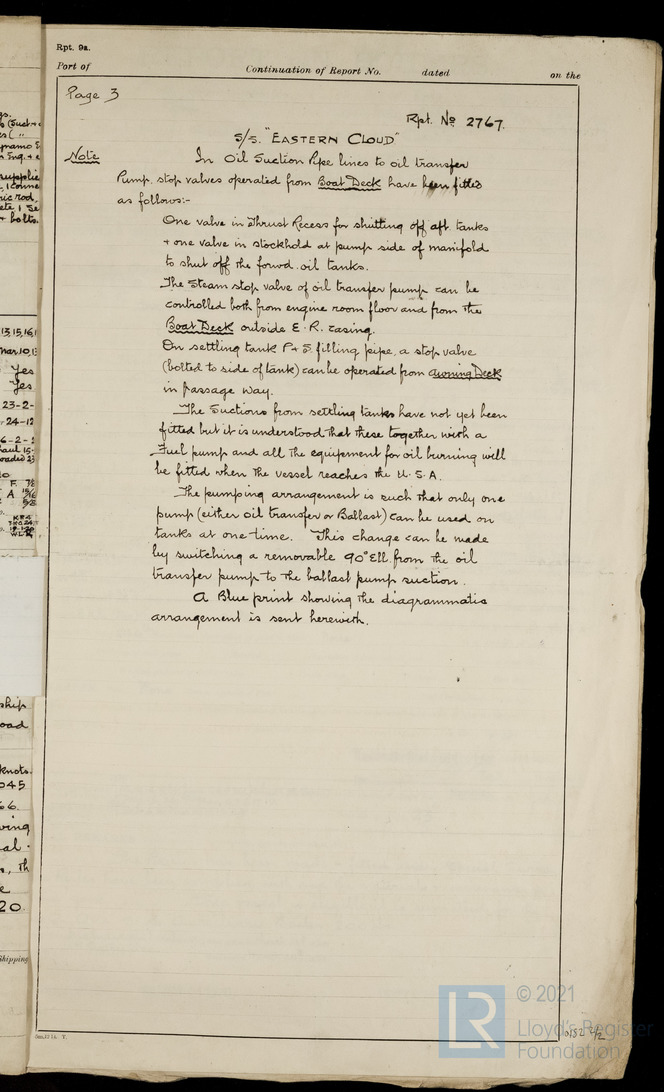 Rpt. 9a.
Port of Continuation of Report No. dated on the
Page 3
Rpt. No 2767.
S/S. "EASTERN CLOUD"
Note In Oil Suction Pipe lines to oil transfer
Pump. stop valves operated from Boat Deck have been fitted
as follows:-
One valve in Thrust Recess for shutting off aft. tanks
+ one valve in stockhold at pump side of manifold
to shut off the forwd. oil tanks.
The Steam stop valve of oil transfer pump can be
controlled both from engine room floor and from the
Boat Deck outside E. R. casing.
On settling tank P + S. filling pipe, a stop valve
(bolted to side of tank) can be operated from Awning Deck
in passage way.
The Suctions from settling tanks have not yet been
fitted but it is understood that these together with a
Fuel pump and all the equipment for oil burning will
be fitted when the vessel reaches the U.S.A.
The pumping arrangement is such that only one
pump (either oil transfer or Ballast) can be used on
tanks at one time. This change can be made
by switching a removable 90° Ell. from the oil
transfer pump to the ballast pump suction.
A Blue print showing the diagrammatic
arrangement is sent herewith.
© 2021
LR
Lloyd's Register
Foundation